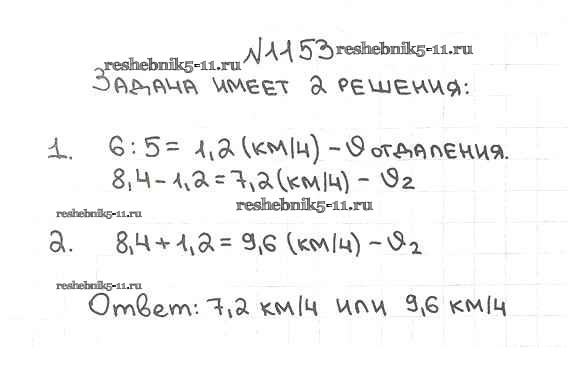 №1153 reshebnik5-11.ru
reshebnik5-11.ru
ЗАДАЧА ИМЕЕТ 2 РЕШЕНИЯ:
1. 6 : 5 = 1,2 (КМ/Ч) – ϑ ОТДАЛЕНИЯ.
8,4 – 1,2 = 7,2 (КМ/Ч) – ϑ2
reshebnik5-11.ru
reshebnik5-11.ru
2. 8,4 + 1,2 = 9,6 (КМ/Ч) – ϑ2
reshebnik5-11.ru
Ответ: 7,2 КМ/Ч ИЛИ 9,6 КМ/Ч